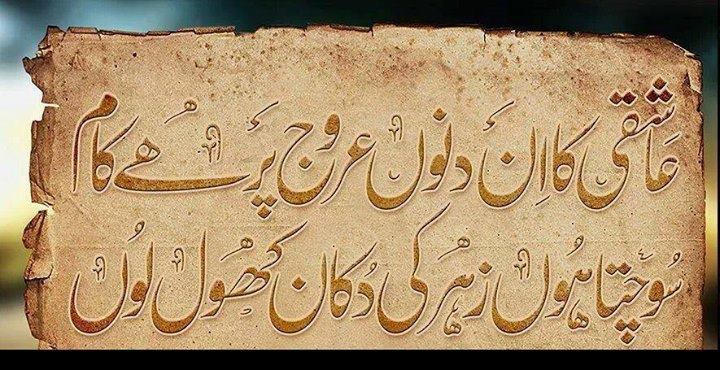 عاشقی کا اِن دنوں عروج پر ھے کام
سوچتا ہوں زہر کی دُکان کھول لوں